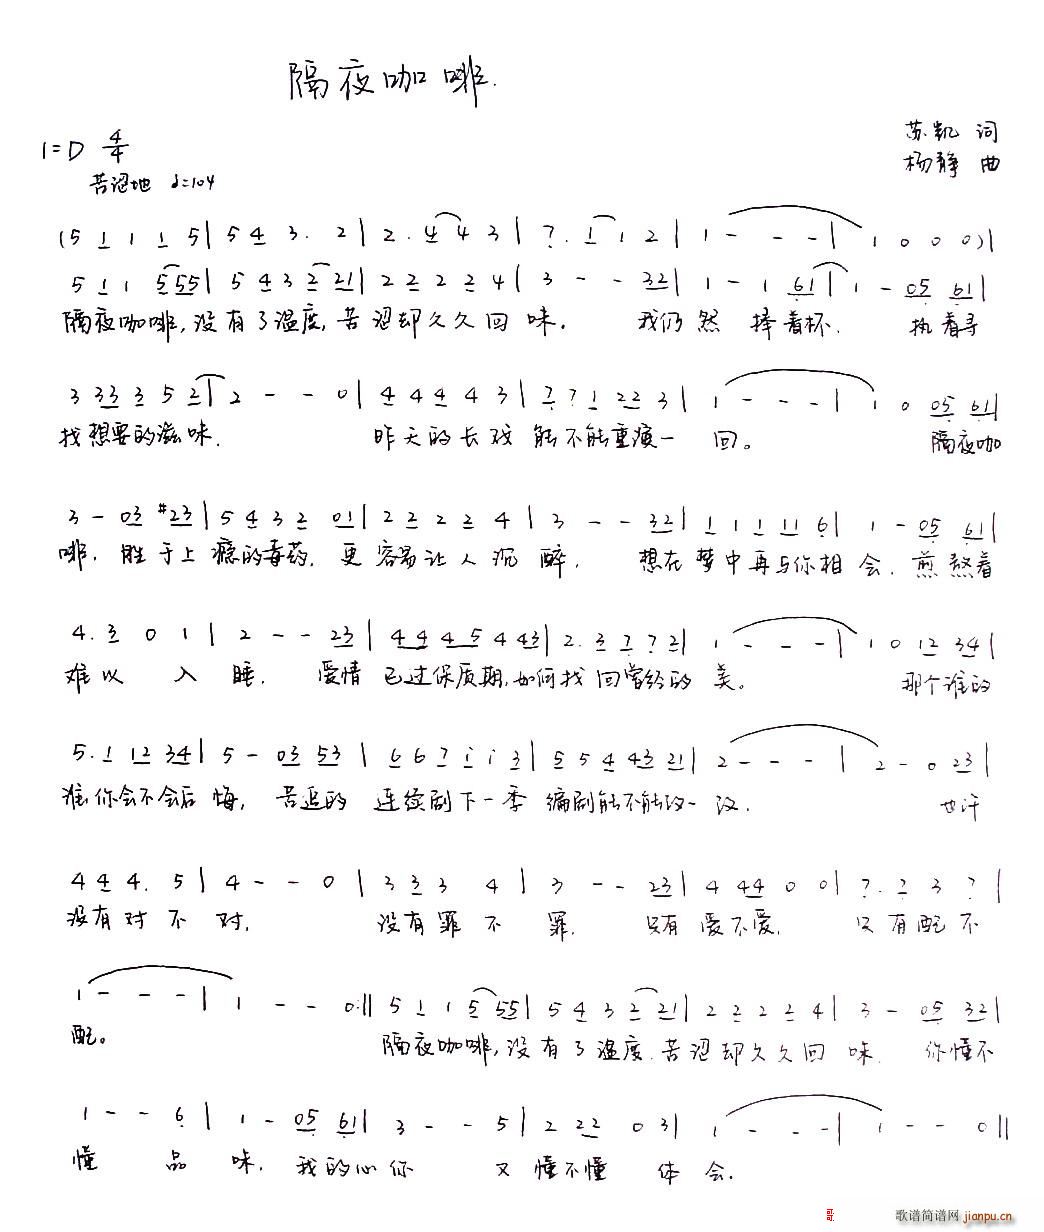 隔夜咖啡.
1=D 4/4
苏凯 词
杨静 曲
苦涩地 ♩=104
(5 1 1 1 5 | 5 4 3. 2 | 2. 4 4 3 | 7. 1 1 2 | 1 - - - | 1 0 0 0 ) |
5 1 1 5 5 5 | 5 4 3 2 2 1 | 2 2 2 2 4 | 3 - - 3 2 | 1 - 1 6 1 | 1 - 0 5 6 1 |
隔夜咖啡,没有了温度,苦涩却久久回味. 我仍然 捧着杯. 执着寻
3 3 3 3 5 2 | 2 - - 0 | 4 4 4 4 3 | 7 7 1 2 2 3 | 1 - - - | 1 0 0 5 6 1 |
找想要的滋味. 昨天的长戏 能不能重演一 回。 隔夜咖
3 - 0 3 #2 3 | 5 4 3 2 0 1 | 2 2 2 2 4 | 3 - - 3 2 | 1 1 1 1 1 6 | 1 - 0 5 6 1 |
啡. 胜于上瘾的毒药. 更容易让人沉醉, 想在梦中再与你相会. 煎熬着
4. 3 0 1 | 2 - - 2 3 | 4 4 4 5 4 4 3 | 2. 3 7 7 2 | 1 - - - | 1 0 1 2 3 4 |
难以 入 睡. 爱情 已过保质期,如何找回曾经的 美。 那个谁的
5. 1 1 2 3 4 | 5 - 0 3 5 3 | 6 6 7 i i 3 | 5 5 4 4 3 2 1 | 2 - - - | 2 - 0 2 3 |
谁你会不会后 悔, 苦追的 连续剧下一季 编剧能不能改一改. 也许
4 4 4. 5 | 4 - - 0 | 3 3 3 4 | 3 - - 2 3 | 4 4 4 0 0 | 7. 7 3 7 |
没有对 不 对. 没有罪 不 罪. 只有 爱不爱. 只有配不
1 - - - | 1 - - 0 :|| 5 1 1 5 5 5 | 5 4 3 2 2 1 | 2 2 2 2 4 | 3 - 0 5 3 2 |
配。 隔夜咖啡,没有了温度.苦涩却久久回 味. 你懂不
1 - - 6 | 1 - 0 5 6 1 | 3 - - 5 | 2 2 2 0 3 | 1 - - - | 1 - - 0 ||
懂 品 味. 我的心你 又 懂不懂 体 会.
歌谱简谱网
jianpu.cn